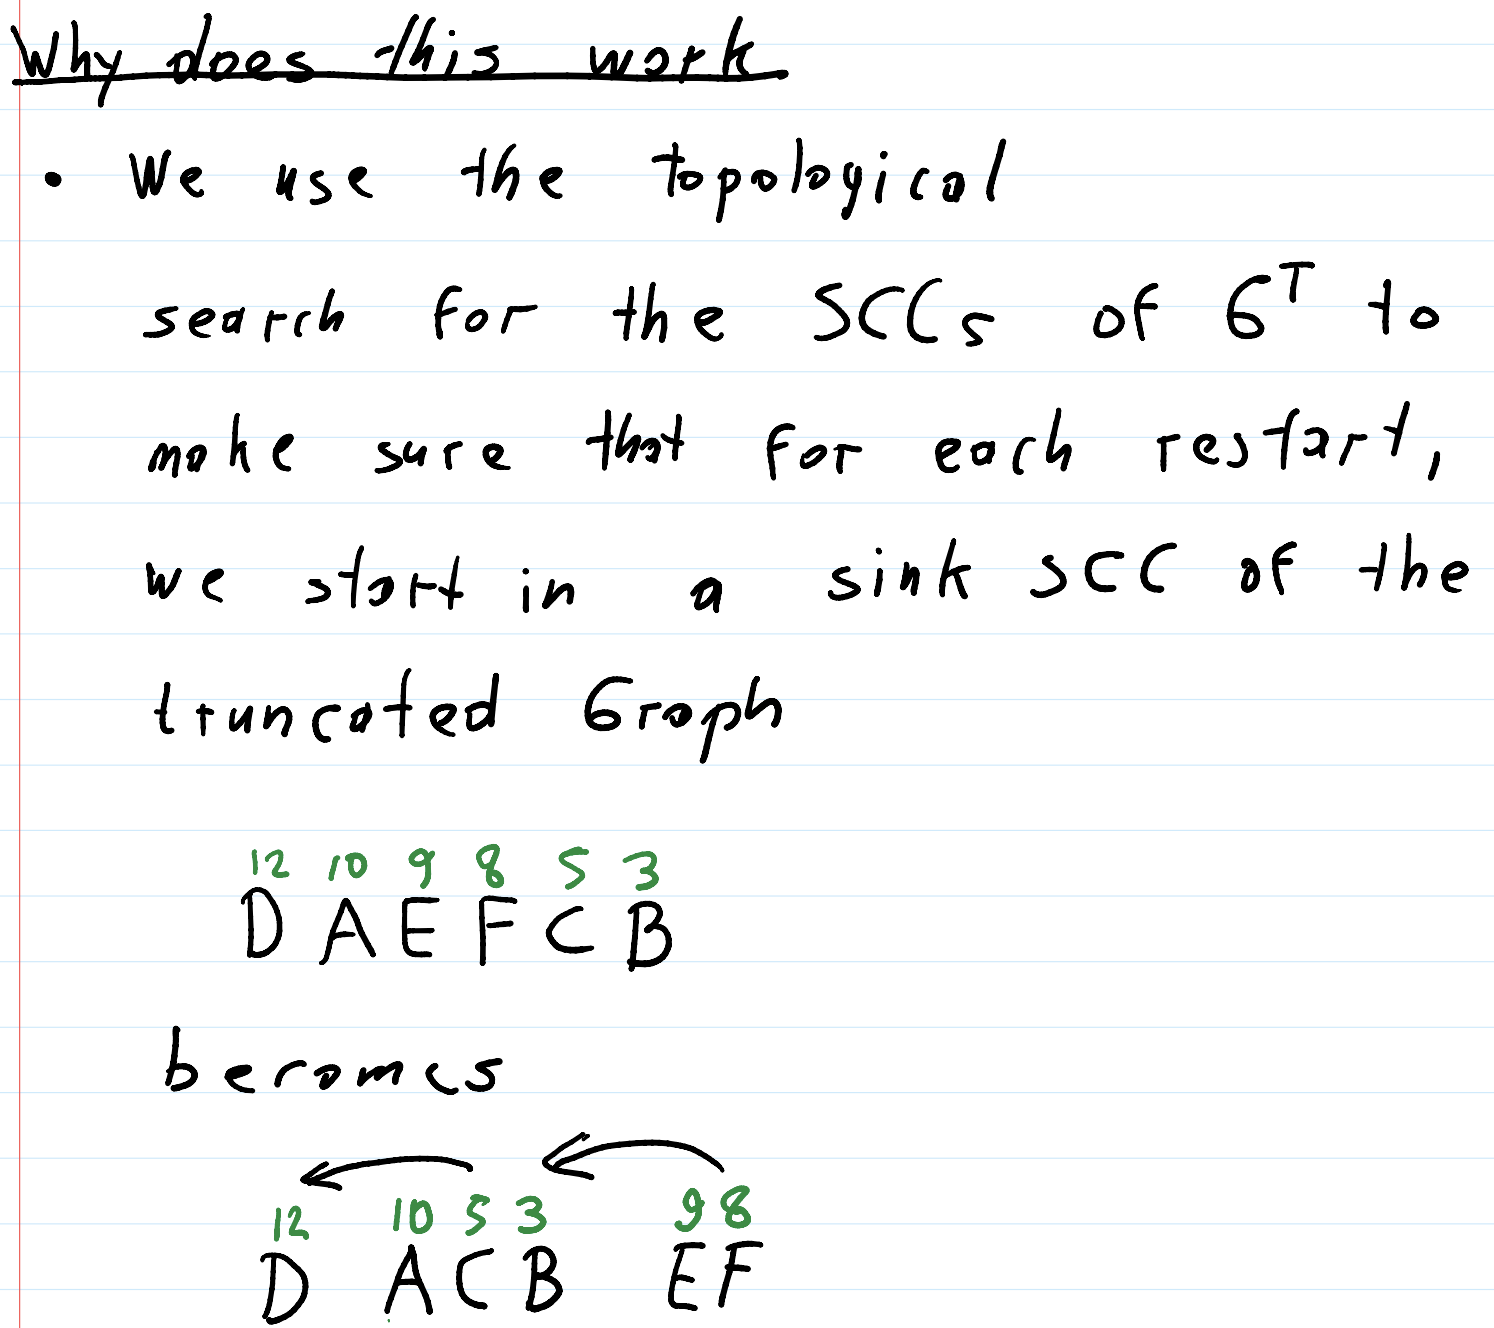 Why does this work
• We use the topological
search for the SCCs of G^T to
make sure that for each restart,
we start in a sink SCC of the
truncated Graph
12 10 9 8 5 3
D A E F C B
becomes
12 10 5 3 9 8
D A C B E F